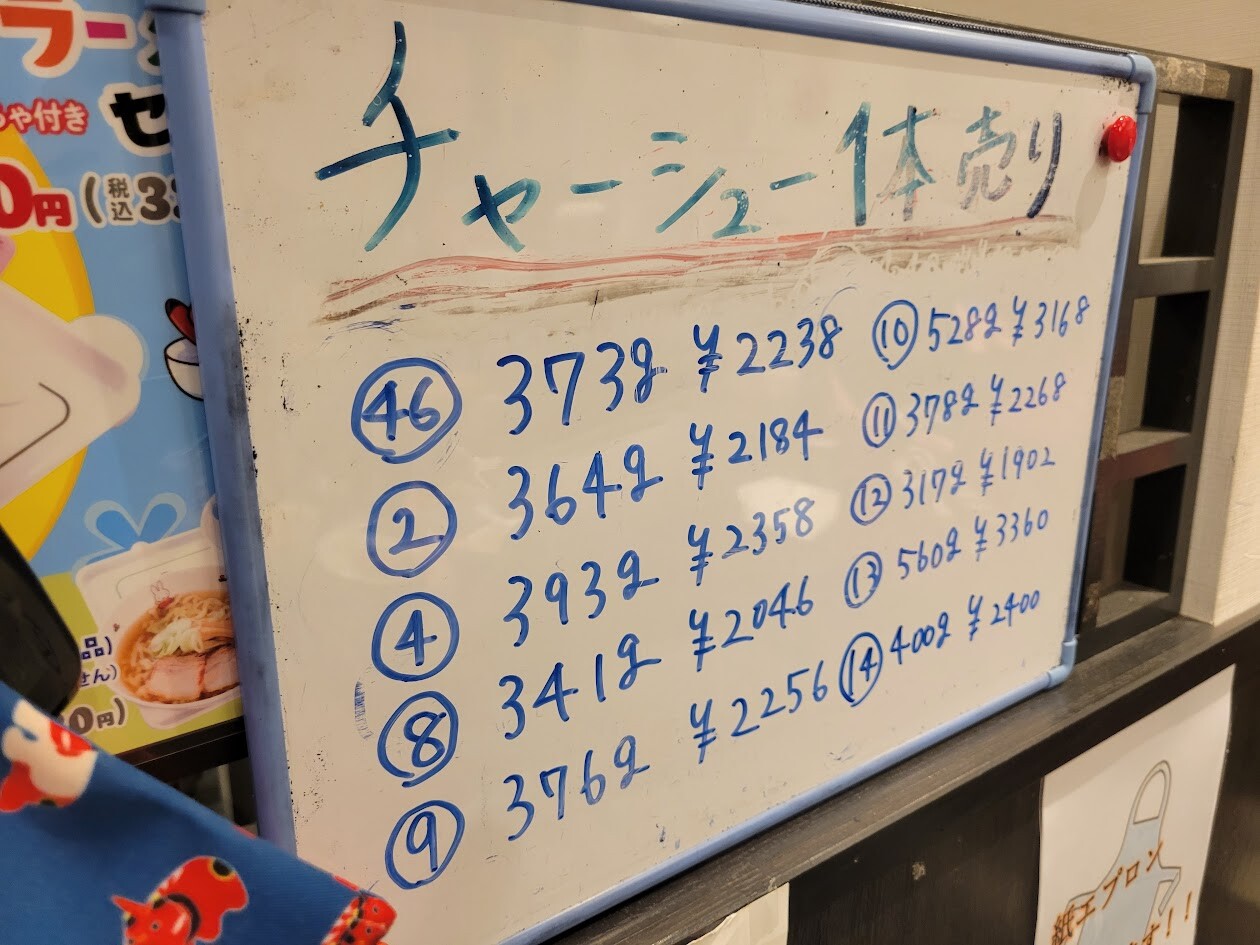 チャーシュー1体売り
㊻ 373g ¥2238
② 364g ¥2184
④ 393g ¥2358
⑧ 341g ¥2046
⑨ 376g ¥2256
⑩ 528g ¥3168
⑪ 378g ¥2268
⑫ 317g ¥1902
⑬ 560g ¥3360
⑭ 400g ¥2400
ラー
ゃ付き
セ
0円(税込33
品)
せん)
00円)
紙エプロン
す!!